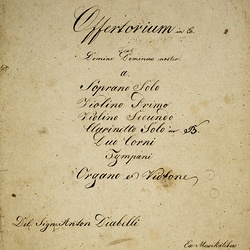 Offertorium in C.
Domine Dominus noster
a.
Soprano Solo
Violino Primo
Violino Secundo
Clarinetto Solo in B.
Due Corni
Tympani
Organo et Violone
Del Sign: Anton Diabelli
Ex Musikalibus